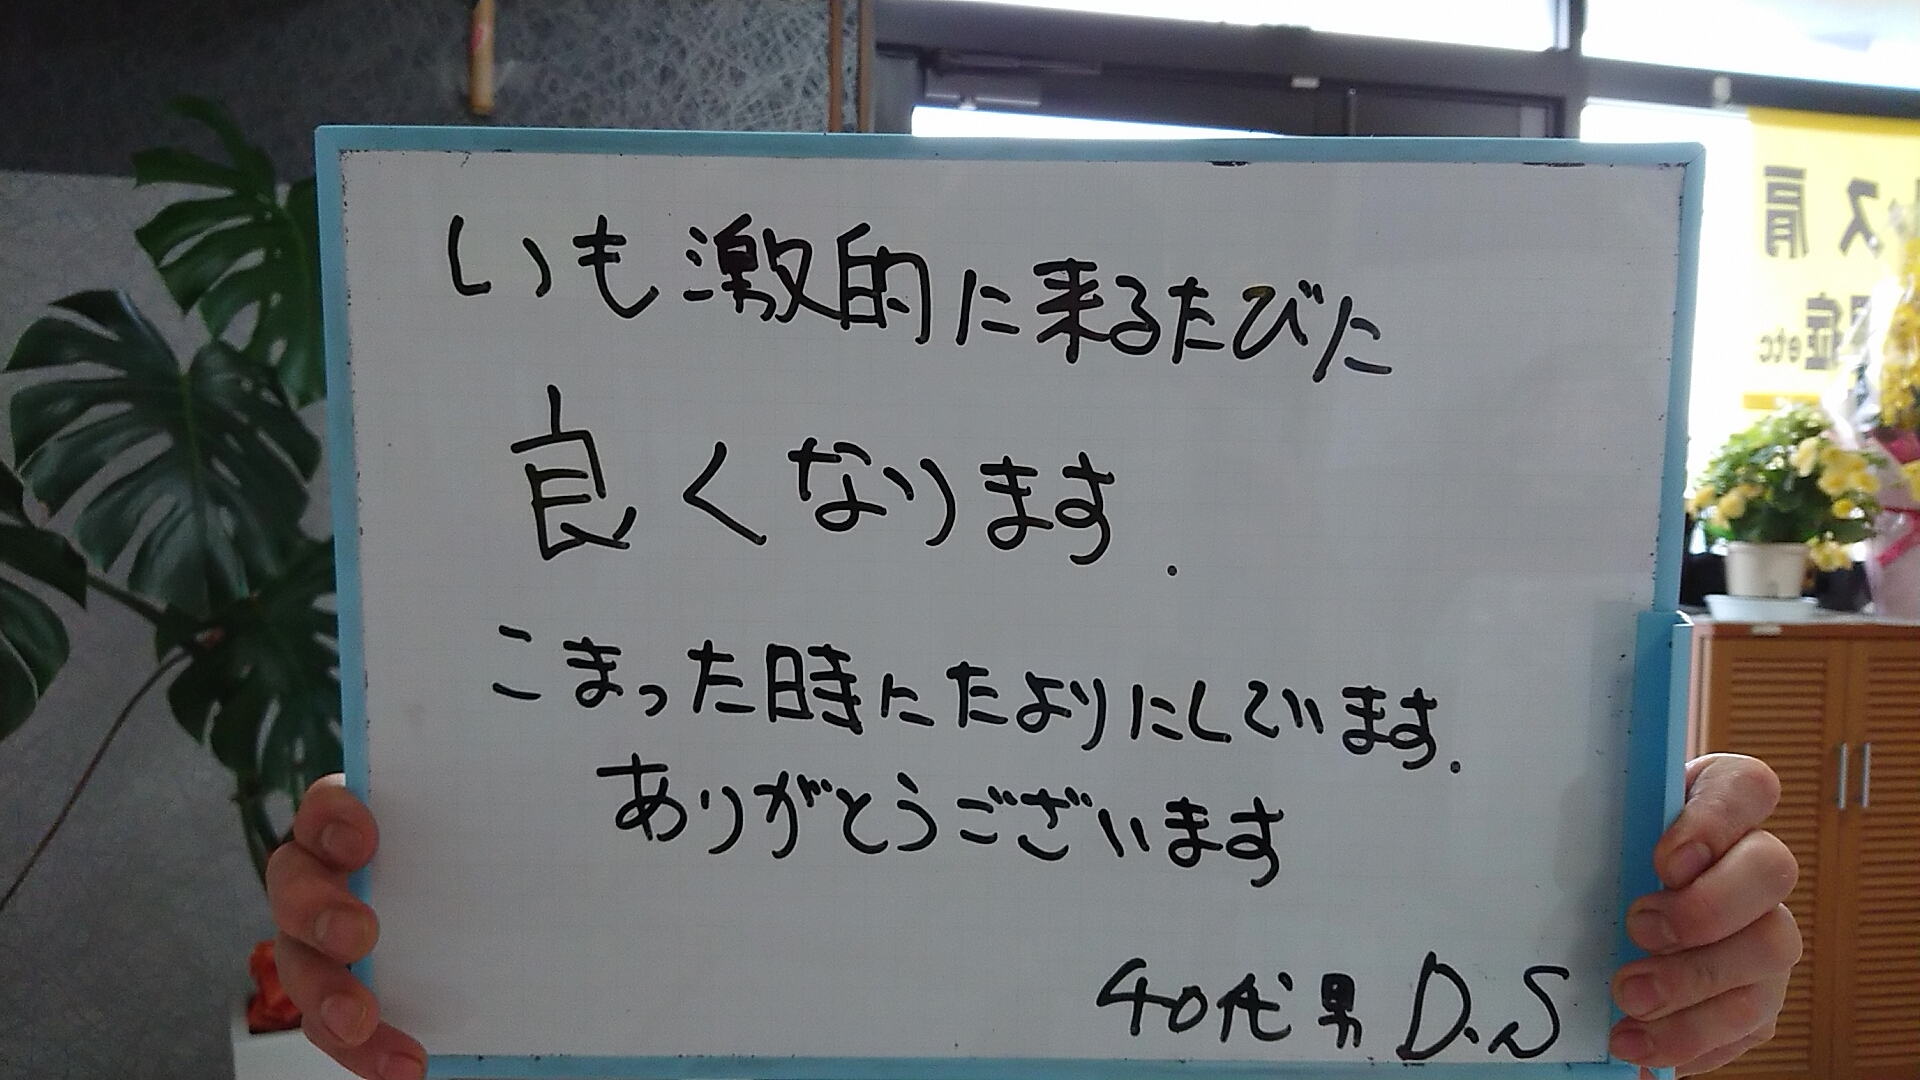 いも激的に来るたびに
良くなります.
こまった時にたよりにしています.
ありがとうございます
40代男 D.S
ス肩
症etc